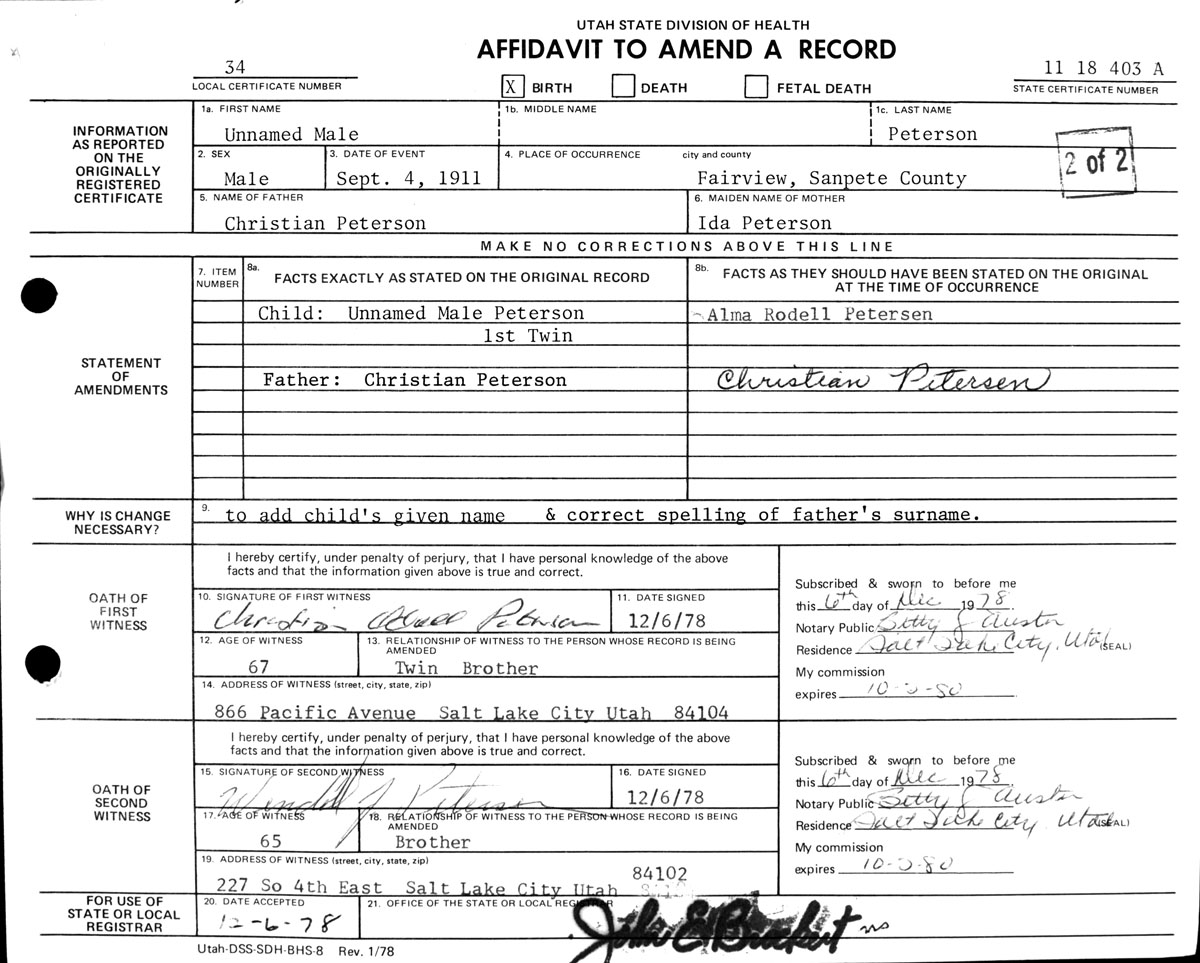 UTAH STATE DIVISION OF HEALTH
AFFIDAVIT TO AMEND A RECORD
34
LOCAL CERTIFICATE NUMBER
X BIRTH DEATH FETAL DEATH
11 18 403 A
STATE CERTIFICATE NUMBER
INFORMATION AS REPORTED ON THE ORIGINALLY REGISTERED CERTIFICATE
1a. FIRST NAME 1b. MIDDLE NAME 1c. LAST NAME
Unnamed Male Peterson
2. SEX 3. DATE OF EVENT 4. PLACE OF OCCURRENCE city and county
Male Sept. 4, 1911 Fairview, Sanpete County
2 of 2
5. NAME OF FATHER 6. MAIDEN NAME OF MOTHER
Christian Peterson Ida Peterson
MAKE NO CORRECTIONS ABOVE THIS LINE
STATEMENT OF AMENDMENTS
7. ITEM NUMBER 8a. FACTS EXACTLY AS STATED ON THE ORIGINAL RECORD 8b. FACTS AS THEY SHOULD HAVE BEEN STATED ON THE ORIGINAL AT THE TIME OF OCCURRENCE
Child: Unnamed Male Peterson Alma Rodell Petersen
1st Twin
Father: Christian Peterson Christian Petersen
WHY IS CHANGE NECESSARY?
9. to add child's given name & correct spelling of father's surname.
OATH OF FIRST WITNESS
I hereby certify, under penalty of perjury, that I have personal knowledge of the above
facts and that the information given above is true and correct.
10. SIGNATURE OF FIRST WITNESS 11. DATE SIGNED
Christian Petersen 12/6/78
12. AGE OF WITNESS 13. RELATIONSHIP OF WITNESS TO THE PERSON WHOSE RECORD IS BEING AMENDED
67 Twin Brother
14. ADDRESS OF WITNESS (street, city, state, zip)
866 Pacific Avenue Salt Lake City Utah 84104
Subscribed & sworn to before me
this 6th day of Dec 1978.
Notary Public Betty J Austin
Residence Salt Lake City, Utah (SEAL)
My commission
expires
OATH OF SECOND WITNESS
I hereby certify, under penalty of perjury, that I have personal knowledge of the above
facts and that the information given above is true and correct.
15. SIGNATURE OF SECOND WITNESS 16. DATE SIGNED
Wendell J Petersen 12/6/78
17. AGE OF WITNESS 18. RELATIONSHIP OF WITNESS TO THE PERSON WHOSE RECORD IS BEING AMENDED
65 Brother
19. ADDRESS OF WITNESS (street, city, state, zip)
84102
227 So 4th East Salt Lake City Utah
Subscribed & sworn to before me
this 6th day of Dec 1978
Notary Public Betty J Austin
Residence Salt Lake City Utah (SEAL)
My commission
expires
FOR USE OF STATE OR LOCAL REGISTRAR
20. DATE ACCEPTED 21. OFFICE OF THE STATE OR LOCAL REGISTRAR
12-6-78 John E Brockert
Utah-DSS-SDH-BHS-8 Rev. 1/78